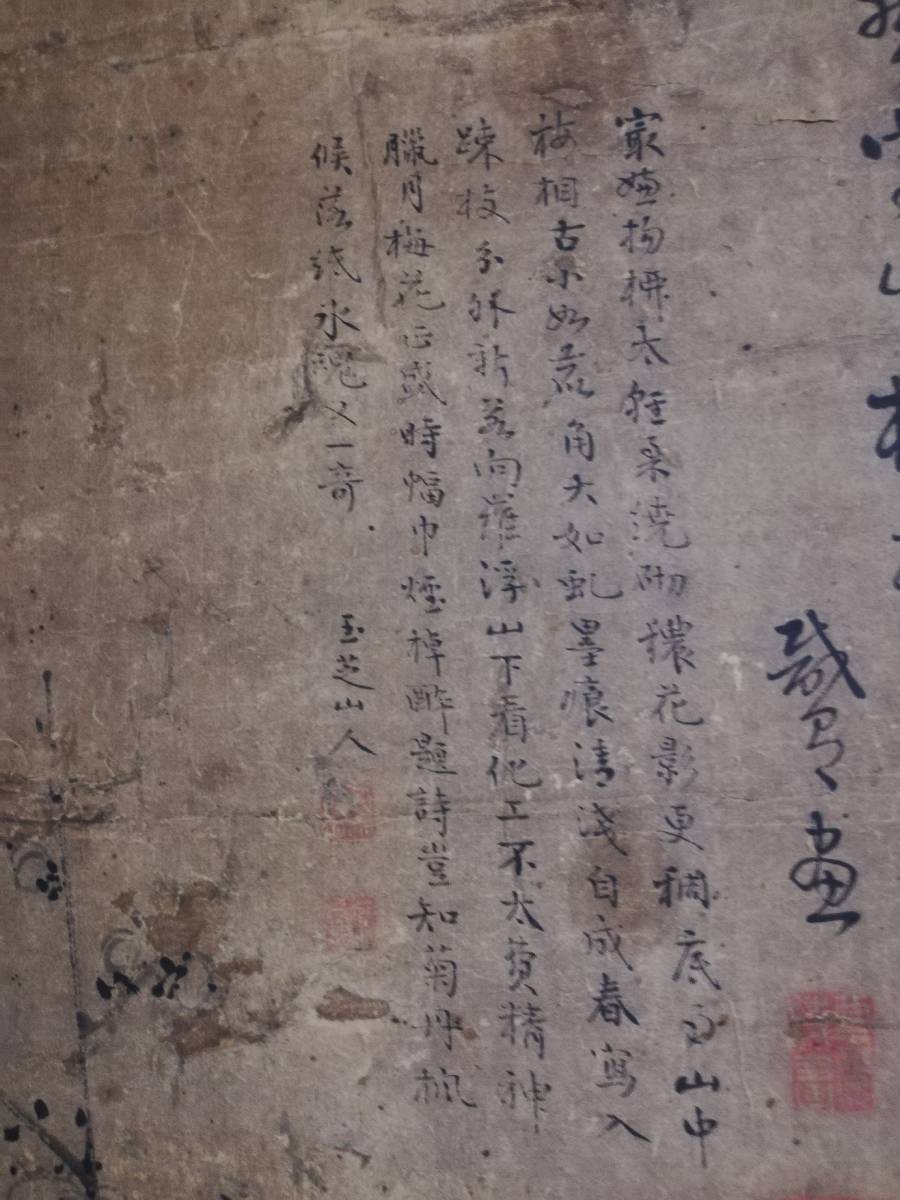 畫
最嫌楊柳太輕柔澆砌穠花影更稠底事山中
梅相古小如鹿角大如虬墨痕清淺自成春寫入
疎枝分外新若向羅浮山下看化工不太費精神
臘月梅花正盛時幅巾煙棹醉題詩豈知菊丹楓
候落紙氷魂又一奇
玉芝山人